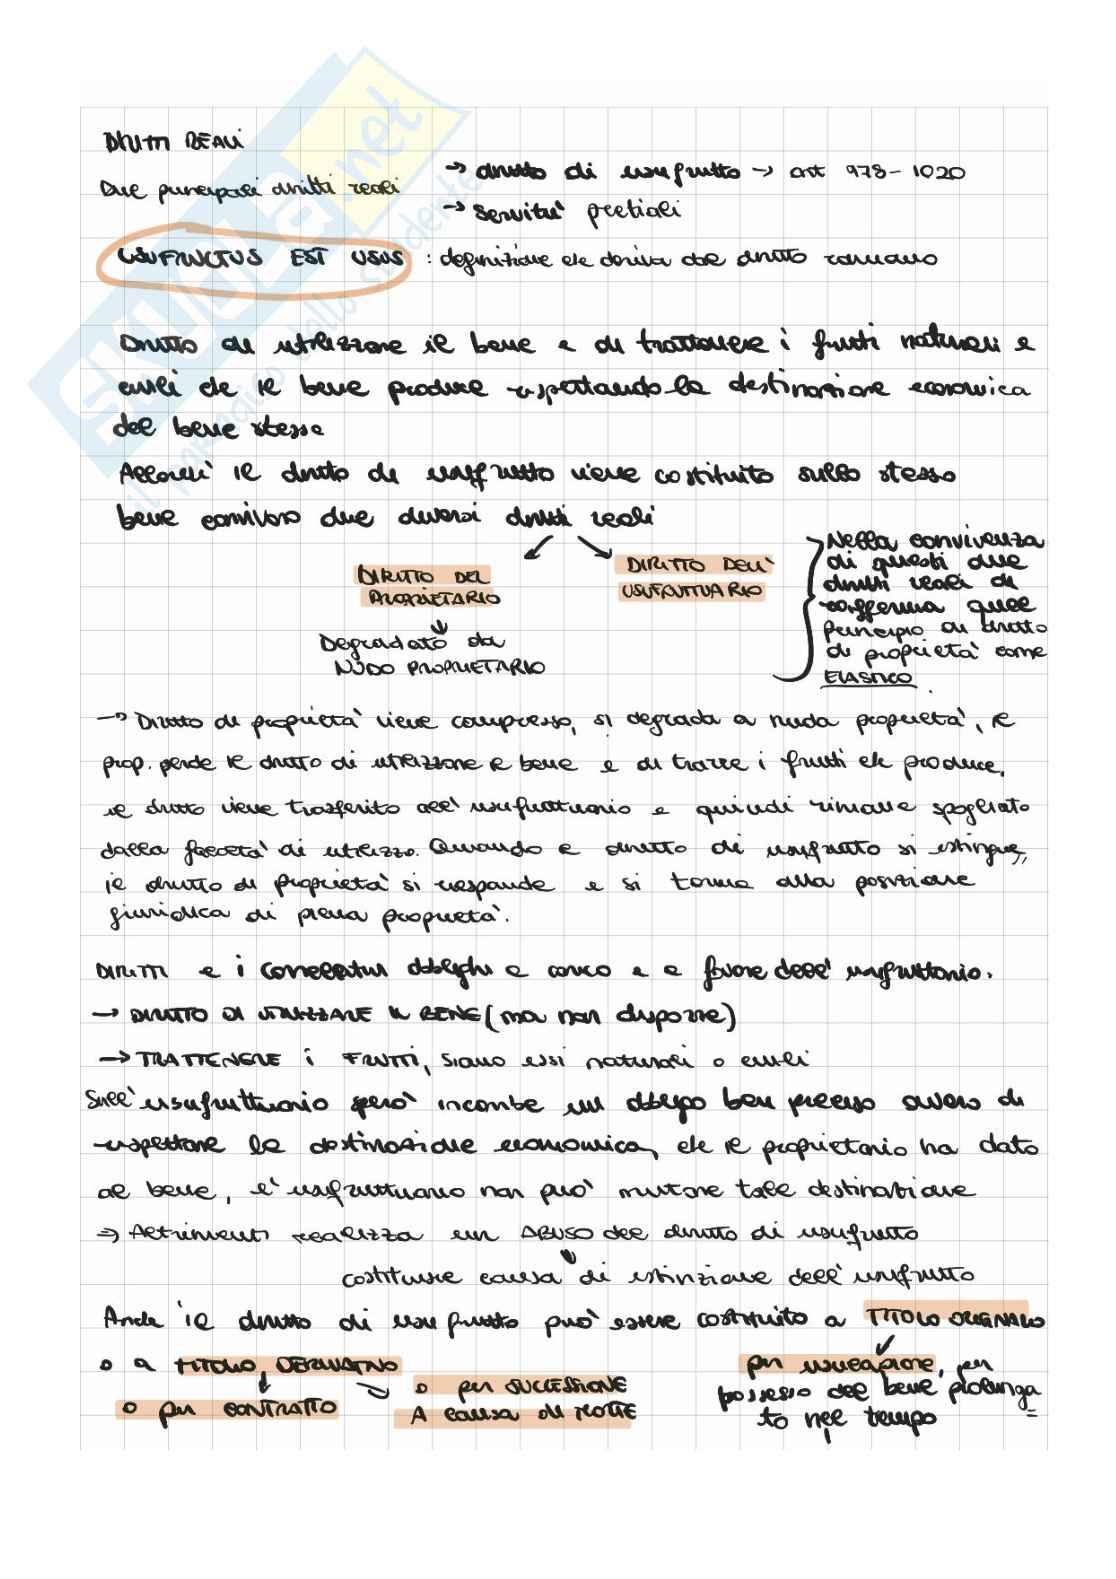 DIRITTI REALI
Due principali diritti reali
→ diritto di usufrutto → art 978 - 1020
→ servitu' prediali
USUFRUCTUS EST USUS : definizione che deriva dal diritto romano
Diritto di utilizzare il bene e di trattenere i frutti naturali e
civili che il bene produce rispettando la destinazione economica
del bene stesso
Allorche' il diritto di usufrutto viene costituito sullo stesso
bene convivono due diversi diritti reali
DIRITTO DEL
PROPRIETARIO
DIRITTO DELL'
USUFRUTTUARIO
Degradato da
NUDO PROPRIETARIO
Nella convivenza
di questi due
diritti reali si
riafferma quel
principio di diritto
di proprieta' come
ELASTICO
→ Diritto di proprieta' viene compresso, si degrada a nuda proprieta', il
prop. perde il diritto di utilizzare il bene e di trarre i frutti che produce,
il diritto viene trasferito all'usufruttuario e quindi rimane spogliato
dalla facolta' di utilizzo. Quando il diritto di usufrutto si estingue,
il diritto di proprieta' si riespande e si torna alla posizione
giuridica di piena proprieta'.
DIRITTI e i correlativi obblighi a carico e a favore dell'usufruttuario.
→ DIRITTO DI UTILIZZARE IL BENE (ma non disporre)
→ TRATTENERE i FRUTTI, siano essi naturali o civili
Sull'usufruttuario pero' incombe un obbligo ben preciso ovvero di
rispettare la destinazione economica, che il proprietario ha dato
al bene, l'usufruttuario non puo' mutare tale destinazione
⇒ Altrimenti realizza un ABUSO del diritto di usufrutto
costituisce causa di estinzione dell'usufrutto
Anche il diritto di usufrutto puo' essere costituito a TITOLO ORIGINARIO
o a TITOLO DERIVATIVO
per usucapione, per
possesso del bene prolunga
to nel tempo
o per CONTRATTO
o per SUCCESSIONE
A causa di MORTE